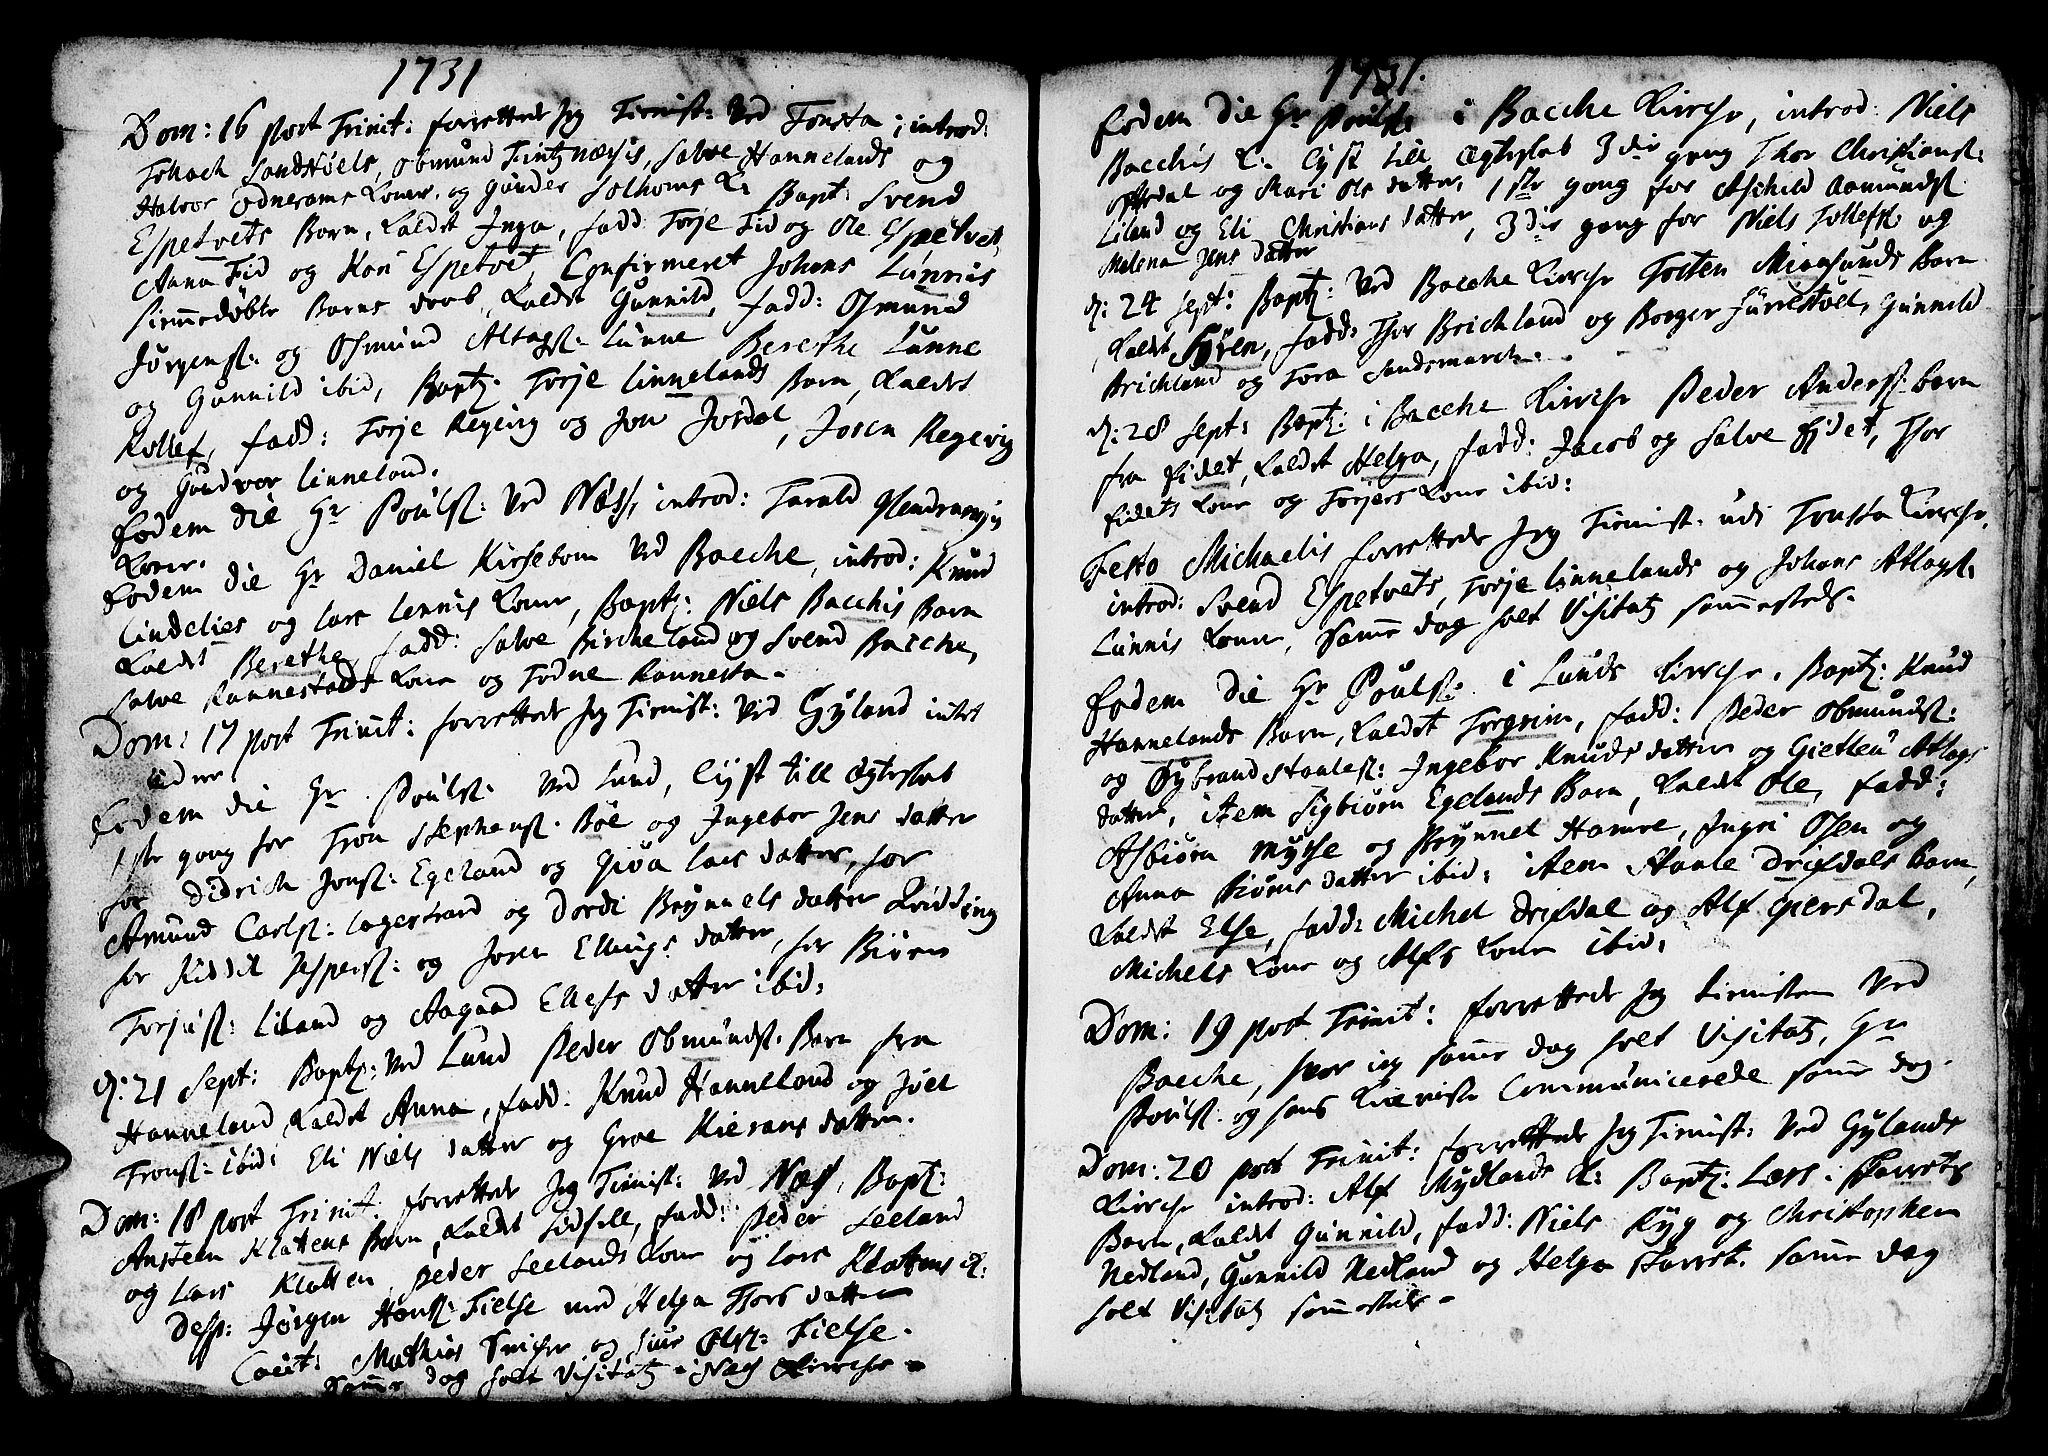 1731
Dom: 16 post Trinit: forrettede Jeg Tienist: ved Tonsta, introd:
Tohach Sandsmöels, Obmund Tintznæsis, Salve Hannelands og
Halvor Ødnerams Koner, og Gunder Solhoms K: Bapt: Svend
Espetvets Barn, Kaldet Inga, fadd: Torje Fid og Ole Espetvet,
Anna Fid og Kari Espetvet, Confirmeret Johans Lunnis
hiemmedøbte Barns daab, Kaldet Gunnild, fadd: Osmund
Jørgenst: og Osmund Atlagst: Lunne Berethe Lunne
og Gunnild ibid, Baptz: Torje Linnelands Barn, Kaldet
Rollef, fadd: Torje Regevig og Jon Jordal, Joren Regevig
og Gundvor Linneland.
Eodem die Hr Poulst: ved Næss, introd: Tarald
Kone.
Eodem die Hr Daniel Kirsebom ved Bacche, introd: Knud
Lindelies og Lars Lennis Koner, Baptz: Niels Bacchis Barn
Kaldet Berethe, fadd: Salve Bircheland og Svend Bacche,
Salve Rannestads Kone og Todne Rannesta.
Dom: 17 post Trinit: forrettede Jeg Tienist: ved Gyland intet
uden
Eodem die Hr Poulst: ved Lund, lyst till Ægteskab
1ste gang for Tron Stephenst: Böe og Ingebor Jens datter
for Didrich Jonst: Egeland og Giöa Lars datter, for
Amund Carlst: Lagestrand og Dordi Brynnels datter Kidding
for Kiddil Jespers: og Joren Ellings datter, for Biørn
Torjust: Liland og Aagaad Ellefs datter ibid:
d: 21 Sept: Baptz: ved Lund Peder Obmundst: Barn fra
Hanneland Kaldet Anna, fadd: Knud Hanneland og Joel
Tronst: ibid: Eli Niels datter og Groe Kierans datter.
Dom: 18 post Trinit: forrettede Jeg Tienist: ved Næss, Bapt:
Ansteen Klattens Barn, Kaldet Sidsell, fadd: Peder Seeland
og Lars Klatten, Peder Seelands Kone og Lars Klattens K:
Desp: Jørgen Hanst: Fielse med Helga Tors datter
Caut: Mathias Snicher og Siur Olst: Fielse.
Samme dag holt Visitatz i Næss Kirche
1731.
Eodem die Hr Poulst: i Bacche Kirche, introd: Niels
Bacchis K: Lyst till Ægteskab 3die gang Thor Christianst:
Offedal og Mari Ols datter, 1ste gang for Aschild Aamundst
Liland og Eli Christians datter, 3die gang for Niels Tollefst og
Malena Jens datter
d: 24 Sept: Baptz: ved Bacche Kirche Tosten Mioesunds Barn
Kaldet Syren, fadd: Thor Brichland og Borger Furrestöel, Gunnild
Brichland og Tora Sandsmarch.
d: 28 Sept: Baptz: i Bacche Kirche Peder Anderst: barn
fra Eidet, Kaldet Helga, fadd: Jacob og Salve Eidet, Thor
Eidets Kone og Torjers Kone ibid:
Festo Michaelis forrettede Jeg Tienist: udi Tonsta Kirche,
introd: Svend Espetvets, Torje Linnelands og Johans Atlagst:
Lunnis Koner, Samme dag holt Visitatz sammesteds.
Eodem die Hr Poulst: i Lunds Kirche, Baptz: Knud
Hannelands Barn, Kaldet Torgrim, fadd: Peder Obmundst:
og Sybrand Staalest: Ingebor Knuds datter og Gietleu Atlags
datter, item Sigbiørn Egelands Barn, Kaldet Ole, fadd:
Asbiørn Mysse og Brynnel Hamre, Ingri Osen og
Anna Biørns datter ibid: item Staale Drifdals Barn,
Kaldet Else, fadd: Michel Drifdal og Alf Giersdal,
Michels Kone og Alfs Kone ibid:
Dom: 19 post Trinit: forrettede Jeg tienisten ved
Bacche, hvor jeg samme dag holt Visitatz, Hr
Poulst: og hans Kiereste Communicerede samme dag.
Dom: 20 post Trinit: forrettede Jeg Tienist: ved Gylands
Kirche introd: Alf Mydlands K: Baptz: Lars Skarrets
Barn, Kaldet Gunnild, fadd: Niels Ryg og Christopher
Nedland, Gunnild Nedland og Helga Skarret. samme dag
holt Visitatz sammesteds.